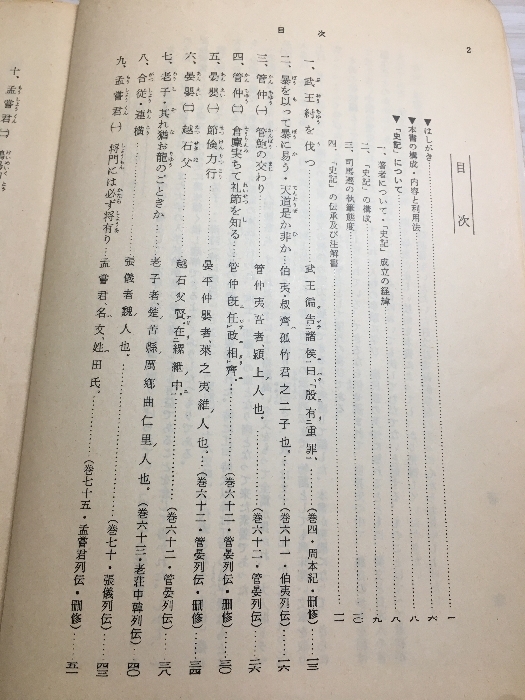 目次
2
目次
▼はしがき……一
▼本書の構成・内容と利用法……六
▼「史記」について……八
一、著者について・「史記」成立の経緯……八
二、「史記」の構成……九
三、司馬遷の執筆態度……一〇
四、「史記」の伝承及び注解書……一一
一、武王紂を伐つ……武王徧告諸侯曰、「殷有重罪、……(巻四・周本紀・刪修)……一三
二、暴を以って暴に易う・天道是か非か……伯夷・叔齊、孤竹君之二子也。……(巻六十一・伯夷列伝)……一六
三、管仲㈠ 管鮑の交わり……管仲夷吾者、潁上人也。……(巻六十二・管晏列伝)……二六
四、管仲㈡ 倉廩実ちて礼節を知る……管仲既任政相齊、……(巻六十二・管晏列伝・刪修)……三〇
五、晏嬰㈠ 節倹力行……晏平仲嬰者、萊之夷維人也。……(巻六十二・管晏列伝・刪修)……三四
六、晏嬰㈡ 越石父……越石父賢、在縲紲中。……(巻六十二・管晏列伝)……三八
七、老子・其れ猶お龍のごときか……老子者、楚苦縣厲鄕曲仁里人也。……(巻六十三・老荘申韓列伝)……四〇
八、合従・連横……張儀者魏人也。……(巻七十・張儀列伝)……四三
九、孟嘗君㈠ 将門には必ず将有り……孟嘗君、名文、姓田氏。……(巻七十五・孟嘗君列伝・刪修)……五一
十、孟嘗君㈡